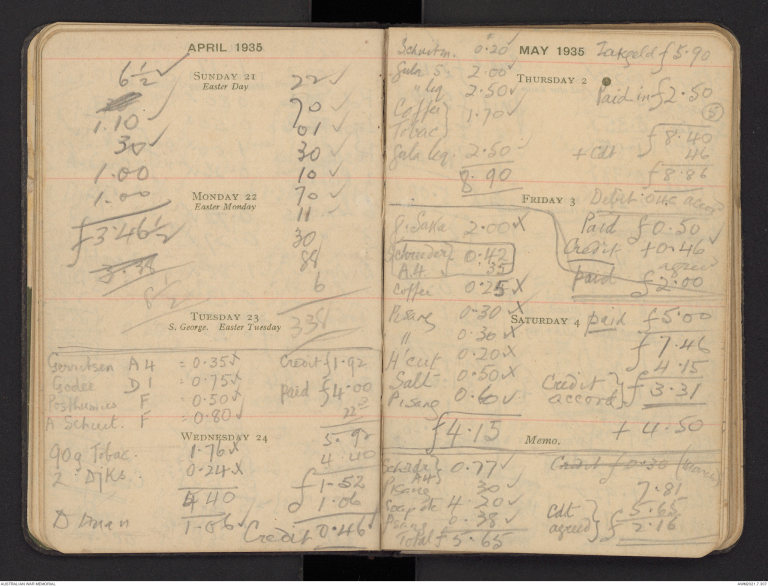 APRIL 1935
SUNDAY 21
Easter Day
6½ ✓
1.10 ✓
30 ✓
1.00
1.00
ƒ3·46½
3.38
8½
22 ✓
70
01 ✓
30 ✓
10 ✓
70 ✓
11 ✓
30
88
6
338
MONDAY 22
Easter Monday
TUESDAY 23
S. George. Easter Tuesday
Gerritsen A4 = 0.35 ✓
Godee D1 = 0.75 ✓
Posthumus F = 0.50 ✓
A Schuit. F = 0.80 ✓
Credit ƒ1.92
paid ƒ4.00
WEDNESDAY 24
90g Tobac. 1.76 X
2. DjKs. 0.24 X
4 40
D Auan 1.06 ✓
5.92
4.40
ƒ1.52
1.06
Credit 0.46 ✓
MAY 1935
Schuitm. 0.20 ✓
Gula S. 2.00 ✓
" leq 2.50 ✓
Coffee }
Tobac } 1.70 ✓
Gula leq. 2.50 ✓
8.90
Zakgeld ƒ5.90
THURSDAY 2
Paid in ƒ2.50
5
ƒ8.40
+ Cdt 46
ƒ8.86
FRIDAY 3
Debit .04c accd
G. Saka 2.00 X
Paid ƒ0.50
Schroeder } 0.42
A.4 35
Credit +0.46
agreed
Coffee 0.25 X
paid ƒ2.00
Pisang 0.30 X
" 0.30 X
H'cut 0.20 X
Salt 0.50 X
Pisang 0.6 ✓
ƒ4.15
SATURDAY 4
paid ƒ5.00
ƒ7.46
4.15
Credit }
accord } ƒ3.31
+ 4.50
MEMO.
Schrdr } 0.77 ✓
A4 }
Pisang 30 ✓
Soap etc 4.20 ✓
Psang 0.38 ✓
Total ƒ5.65
Credit ƒ0.30
7.81
5.65
Cdt }
agreed } ƒ2.16
AUSTRALIAN WAR MEMORIAL